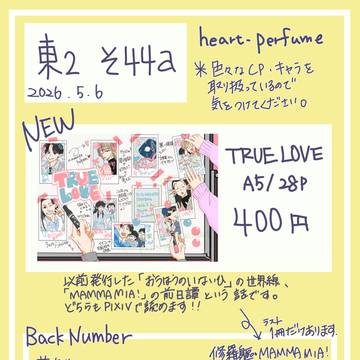 東2 そ44a
2026.5.6
heart-perfume
※色々なCP・キャラを
取り扱っているので
気をつけてください。
NEW
TRUE LOVE
TRUE LOVE
A5/28P
400円
以前発行した「おうほうのいないひ」の世界線、
「MAMMA MIA!」の前日譚という話です。
どちらもPIXIVで読めます!!
ラスト
1冊だけあります
Back Number
修羅駆・MAMMA MIA